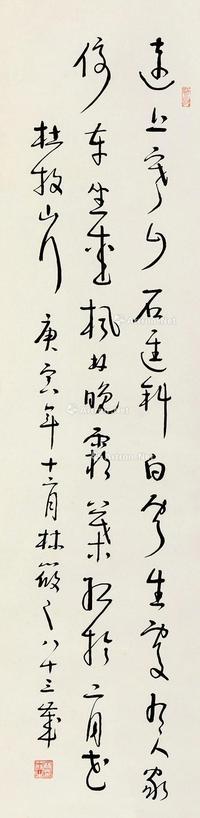 遠上寒山石徑斜白雲生處有人家
停車坐愛楓林晚霜葉紅於二月花
杜牧山行 庚寅年十二月林筱之八十三歲